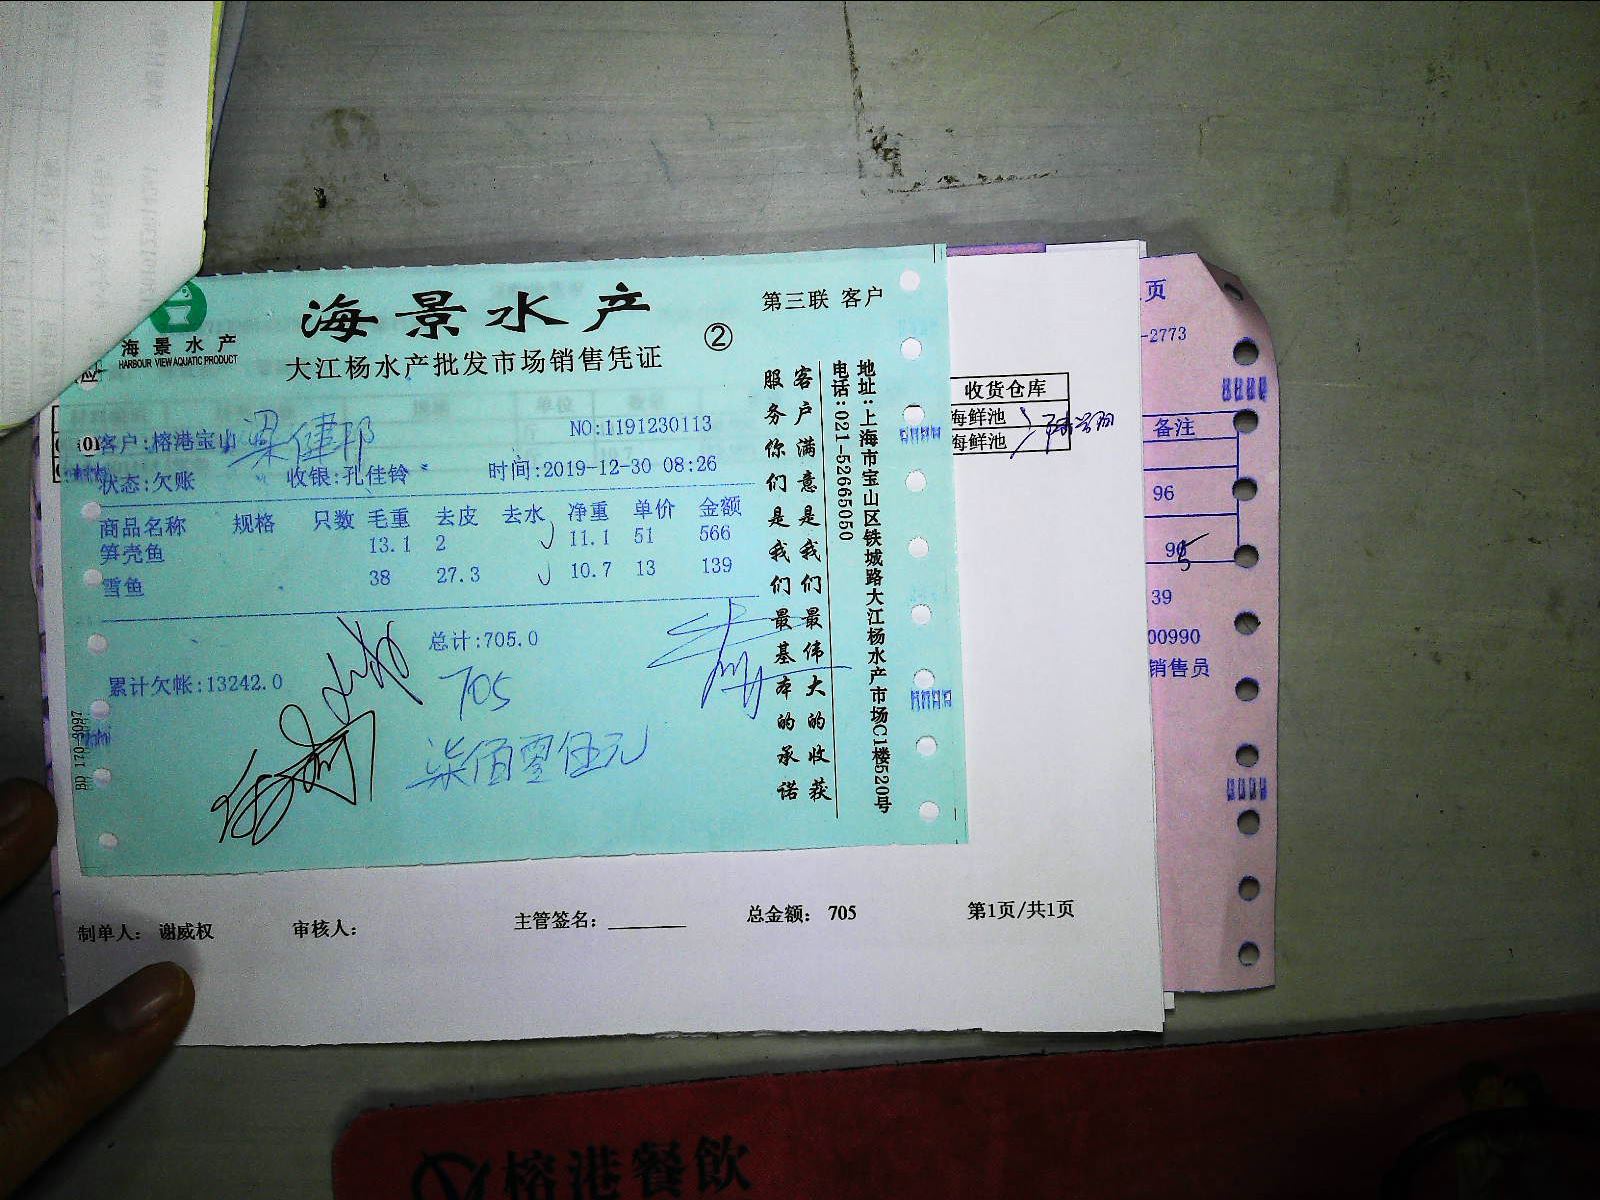 海景水产
HARBOUR VIEW AQUATIC PRODUCT
海景水产
大江杨水产批发市场销售凭证
②
第三联 客户
客户:榕港宝山 梁健邦
NO:1191230113
状态:欠账 收银:孔佳铃 时间:2019-12-30 08:26
商品名称 规格 只数 毛重 去皮 去水 净重 单价 金额
笋壳鱼 13.1 2 11.1 51 566
雪鱼 38 27.3 10.7 13 139
总计:705.0
累计欠帐:13242.0
705
柒佰零伍元
客户满意是我们最伟大的收获
服务你们是我们最基本的承诺
地址:上海市宝山区铁城路大江杨水产市场C1楼520号
电话:021-52665050
BD 170-3097
收货仓库
海鲜池
海鲜池
页
-2773
备注
96
96
5
39
00990
销售员
制单人: 谢威权 审核人: 主管签名: 总金额: 705 第1页/共1页
榕港餐飲